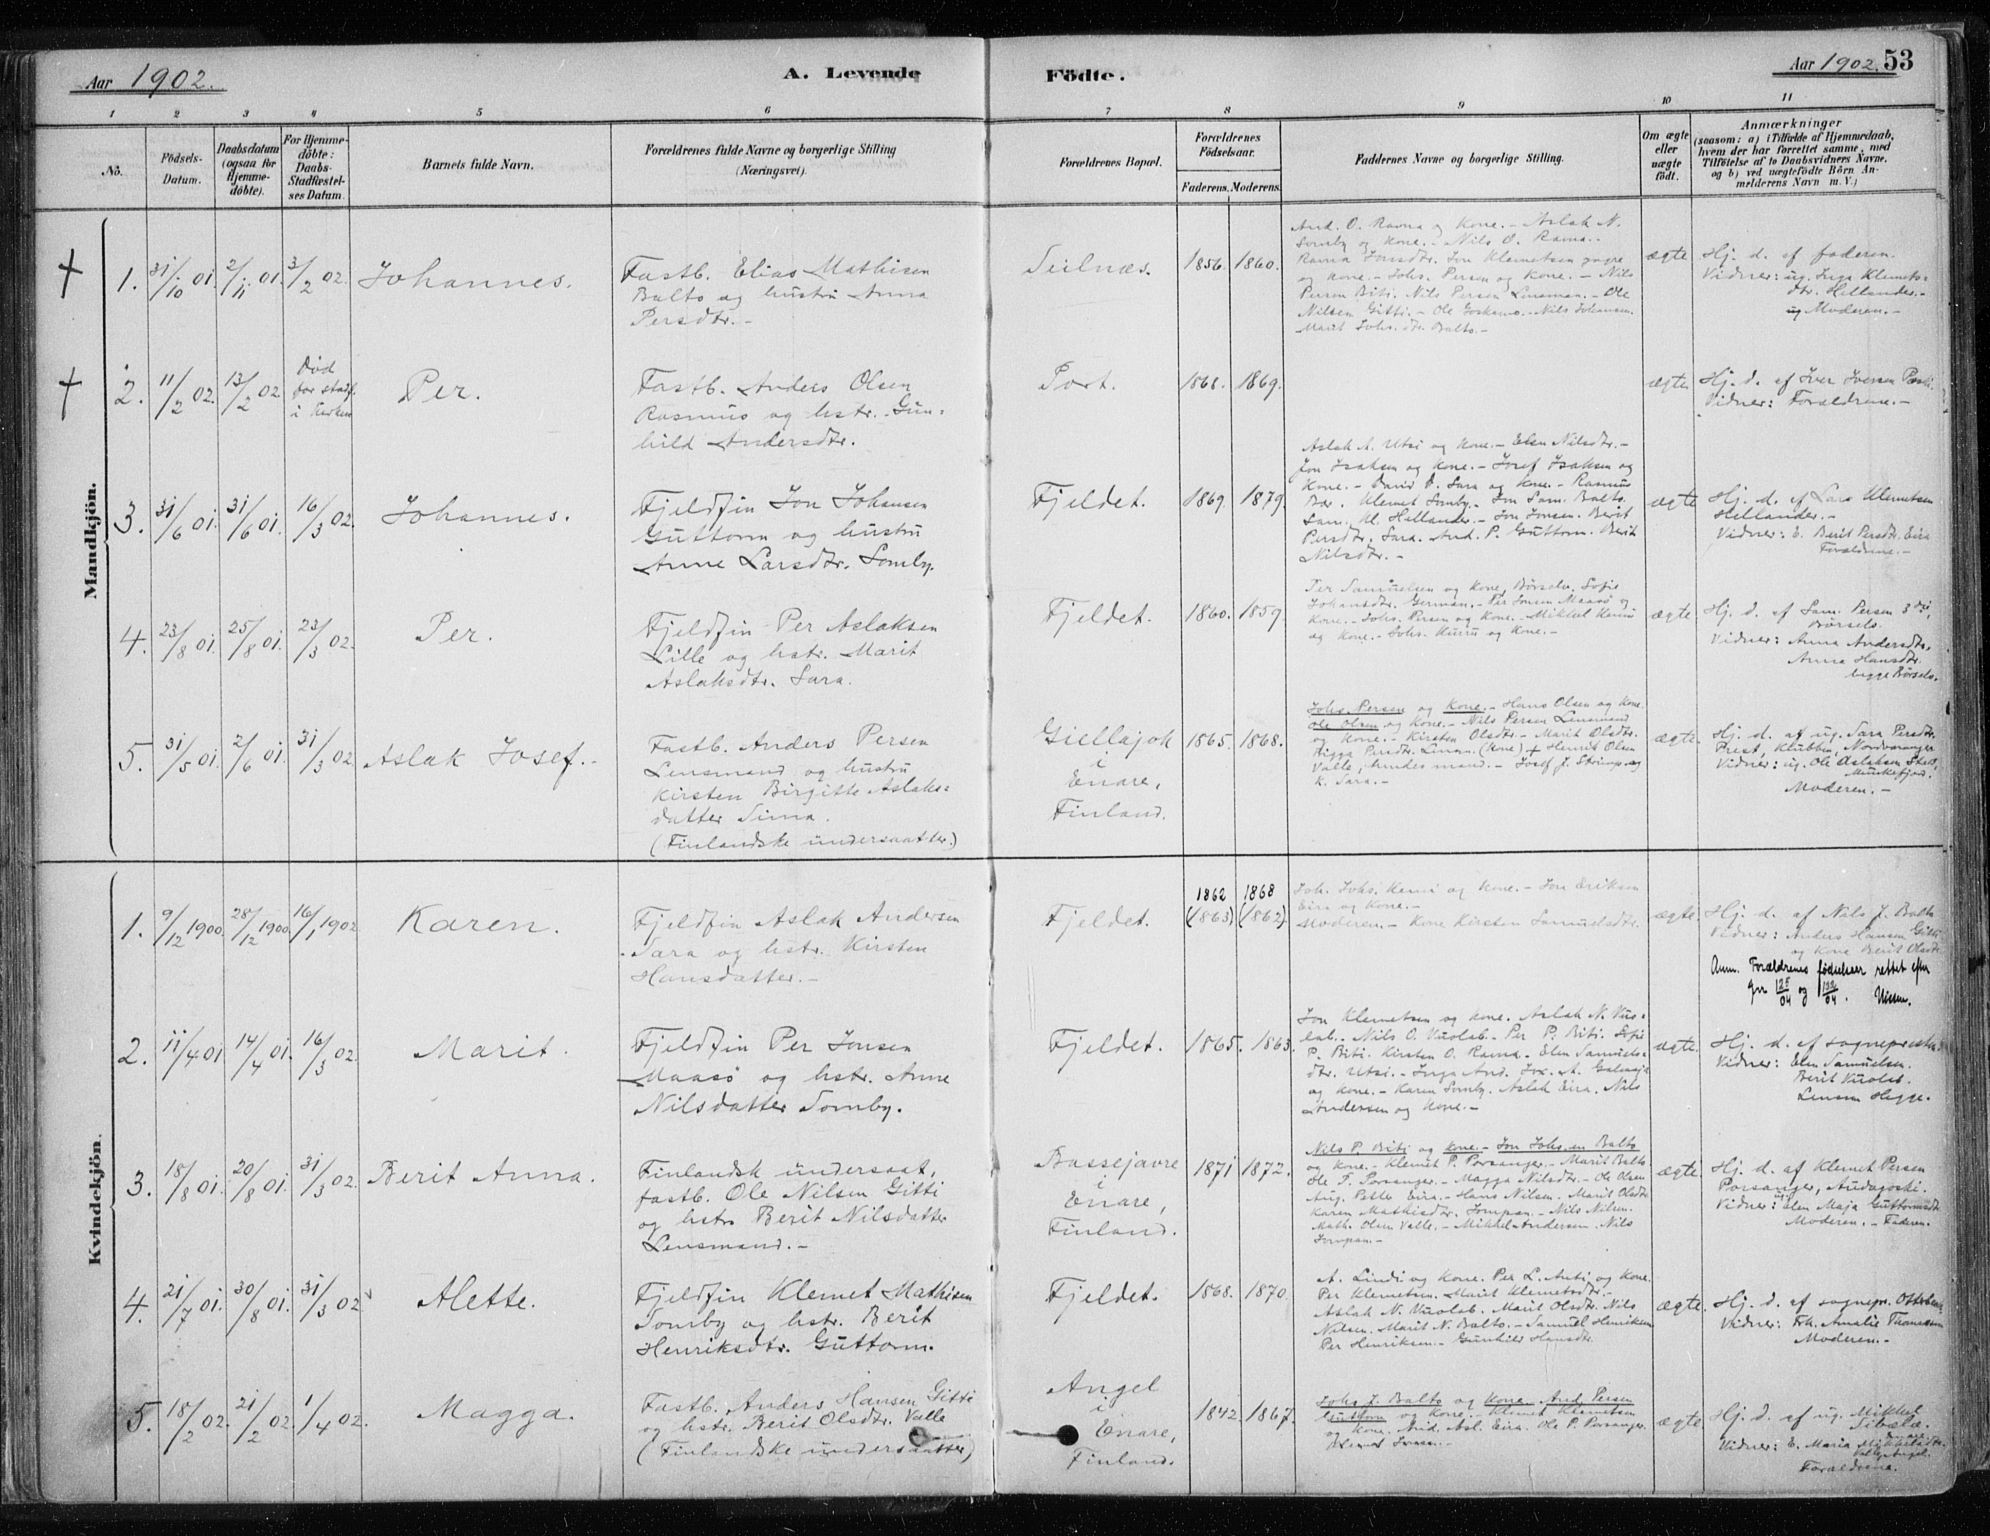 Aar 1902.
A. Levende Födte.
Aar 1902. 53
1 2 3 4 5 6 7 8 9 10 11
No.
Födsels-
Datum.
Daabsdatum
(ogsaa for
Hjemme-
döbte).
For Hjemme-
döbte:
Daabs-
Stadfæstel-
ses Datum.
Barnets fulde Navn.
Forældrenes fulde Navne og borgerlige Stilling
(Næringsvei).
Forældrenes Bopæl.
Forældrenes
Födselsaar.
Faderens. Moderens.
Faddernes Navne og borgerlige Stilling.
Om ægte
eller
uægte
født.
Anmærkninger
(saasom: a) i Tilfælde af Hjemmedaab,
hvem der har forrettet samme, med
Tilföielse af to Daabsvidners Navne,
og b) ved uægtefödte Börn An-
melderens Navn m. V.)
Mandkjön.
1. 31/10 01. 2/11 01. 3/2 02. Johannes.
Fastb. Elias Mathisen
Balto og hustru Anna
Persdtr. -
Seilnæs. 1856. 1860.
And. O. Ravna og Kone. - Aslak N.
Somby og Kone. - Nils O. Ravna. -
Ravna Jonsdtr. Jon Klemetsen yngre
og Kone. - Johs. Persen og Kone. - Nils
Persen Biti. Nils Persen Lensman. - Ole
Nilsen Gitti. - Ole Joskamo. - Nils Johansen.
Marit Johs. dtr. Balto. -
ægte
Hj. d. af faderen.
Vidner: ug. Inga Klemets-
dtr. Hellander. -
og Moderen. -
2. 11/2 02. 13/2 02. Død
før stadf.
i Kirken
Per.
Fastb. Anders Olsen
Rasmus og hstr. Gun-
hild Andersdtr.
Port. 1868. 1869.
ægte.
Hj. d. af Iver Iversen
Vidner: Forældrene. -
3. 31/6 01. 31/6 01. 16/3 02. Johannes.
Fjeldfin Jon Johansen
Guttorm og hustru
Anne Larsdtr. Somby.
Fjeldet. 1869. 1879.
Aslak A. Utsi og Kone. - Elen Nilsdtr. -
Jon Isaksen og Kone. - Josef Isaksen og
Kone. - David P. Sara og Kone. - Rasmus
Klemet Somby. - Jon Sam. Balto.
Sam. Kl. Hellander. - Jon Jonsen. Berit
Persdtr. Sara. And. P. Guttorm. Berit
Nilsdtr. -
ægte
Hj. d. af Lars Klemetsen
Hellander. -
Vidner: E. Berit Persdtr. Eira
Forældrene. -
4. 23/8 01. 25/8 01. 23/3 02. Per.
Fjeldfin Per Aslaksen
Lille og hstr. Marit
Aslaksdtr. Sara.
Fjeldet. 1860. 1859.
Per Samuelsen og Kone, Børselv. Sofie
Johansdtr. German. - Per Jonsen Maasø og
Kone. - Johs. Persen og Kone. - Mikkel
og Kone. - Johs. og Kone. -
ægte
Hj. d. af Sam. Persen
Børselv.
Vidner: Anna Andersdtr.,
Anna Hansdtr.
begge Børselv.
5. 31/5 01. 2/6 01. 31/3 02. Aslak Josef. -
Fastb. Anders Persen
Lensmand og hustru
Kirsten Birgitte Aslaks-
datter Sima.
(Finlandske undersaatter.)
Giellajok
i
Enare,
Finland.
1865. 1868.
Johs. Persen og Kone. - Hans Olsen og Kone.
Ole Olsen og Kone. - Nils Persen Lensmand
og Kone. - Kirsten Olsdtr. - Marit Olsdtr.
Henrik Olsen
Valle, hendes mand. - Josef J. og
K. Sara. -
ægte.
Hj. d. af ug. Sara Persdtr.
Prest, Klubben, Nordvaranger
Vidner: ug. Ole Aslaksen
Moderen. -
Kvindekjön.
1. 9/12 1900. 28/12 1900. 16/1 1902. Karen.
Fjeldfin Aslak Andersen
Sara og hstr. Kirsten
Hansdatter. -
Fjeldet.
1862 1868
(1863) (1862)
Joh. Johs. og Kone. - Jon Eriksen
Eira og Kone. -
Moderen. - Kone Kirsten Samuelsdtr.
ægte.
Hj. d. af Nils J. Balto
Vidner: Anders Hansen Gitti
og Kone Berit Olsdtr.
Anm. Forældrenes fødselsaar rettet efter
og Nissen.
2. 11/4 01. 14/4 01. 16/3 02. Marit.
Fjeldfin Per Jonsen
Maasø og hstr. Anne
Nilsdatter Somby.
Fjeldet. 1865. 1863.
Jon Klemetsen og Kone. Aslak N. Vuo-
lab. - Nils O. Vuolab. - Per P. Biti. Sofie
P. Biti. Kirsten O. Ravna. - Elen Samuels-
dtr. Utsi. - Inga And.
og Kone. - Karen Somby. Aslak Eira. Nils
Andersen og Kone. -
ægte.
Hj. d. af sognepresten
Vidner: Elen Samuelsen.
Berit Vuolab.
Lensm Hegge.
3. 18/8 01. 20/8 01. 31/3 02. Berit Anna.
Finlandsk undersaat,
fastb. Ole Nilsen Gitti
og hstr. Berit Nilsdatter
Lensmand. -
Bassejavre
i
Enare,
Finland.
1871 1872.
Nils P. Biti og Kone. - Jon Johs.en Balto
og Kone. - Klemet P. Porsanger. - Marit Balto
Ole T. Porsanger. - Magga Nilsdtr. - Ole Olsen
Aug. Petter Eira. - Hans Nilsen. Marit Olsdtr.
Karen Mathisdtr. Jompan. - Nils Nilsen.
Math. Olsen Valle. - Mikkel Andersen. Nils
Jompan. -
ægte
Hj. d. af Klemet Persen
Porsanger,
Vidner: ug. Elen Maja Guttormsdtr.
Moderen. - Faderen.
4. 21/7 01. 30/8 01. 31/3 02. Alette.
Fjeldfin Klemet Mathisen
Somby og hstr. Berit
Henriksdtr. Guttorm.
Fjeldet. 1868. 1870.
A. Lindi og Kone. Per L. Anti og Kone.
Per Klemetsen. Marit Klemetsdtr. -
Aslak N. Vuolab. Marit Olsdtr. Nils
Nilsen. Marit N. Balto. - Samuel Henriksen
Per Henriksen. - Gunhild Hansdtr.
ægte.
Hj. d. af sognepr.
Vidner: Frk. Amalie Thomassen
Moderen. -
5. 18/2 02. 21/2 02. 1/4 02. Magga.
Fastb. Anders Hansen Gitti
og hstr. Berit Olsdtr. Valle
(Finlandske undersaatter)
Angel
i
Enare,
Finland.
1842. 1867.
Johs. J. Balto og Kone. And. Persen
Guttorm og Kone. - Klemet Klemetsen
og Kone. And. Asl. Eira. Ole P. Porsanger.
Klemet Iversen. -
ægte.
Hj. d. af ug. Mikkel
Vidner: E. Maria Mikkelsdtr.
Valle, Angel.
Forældrene.